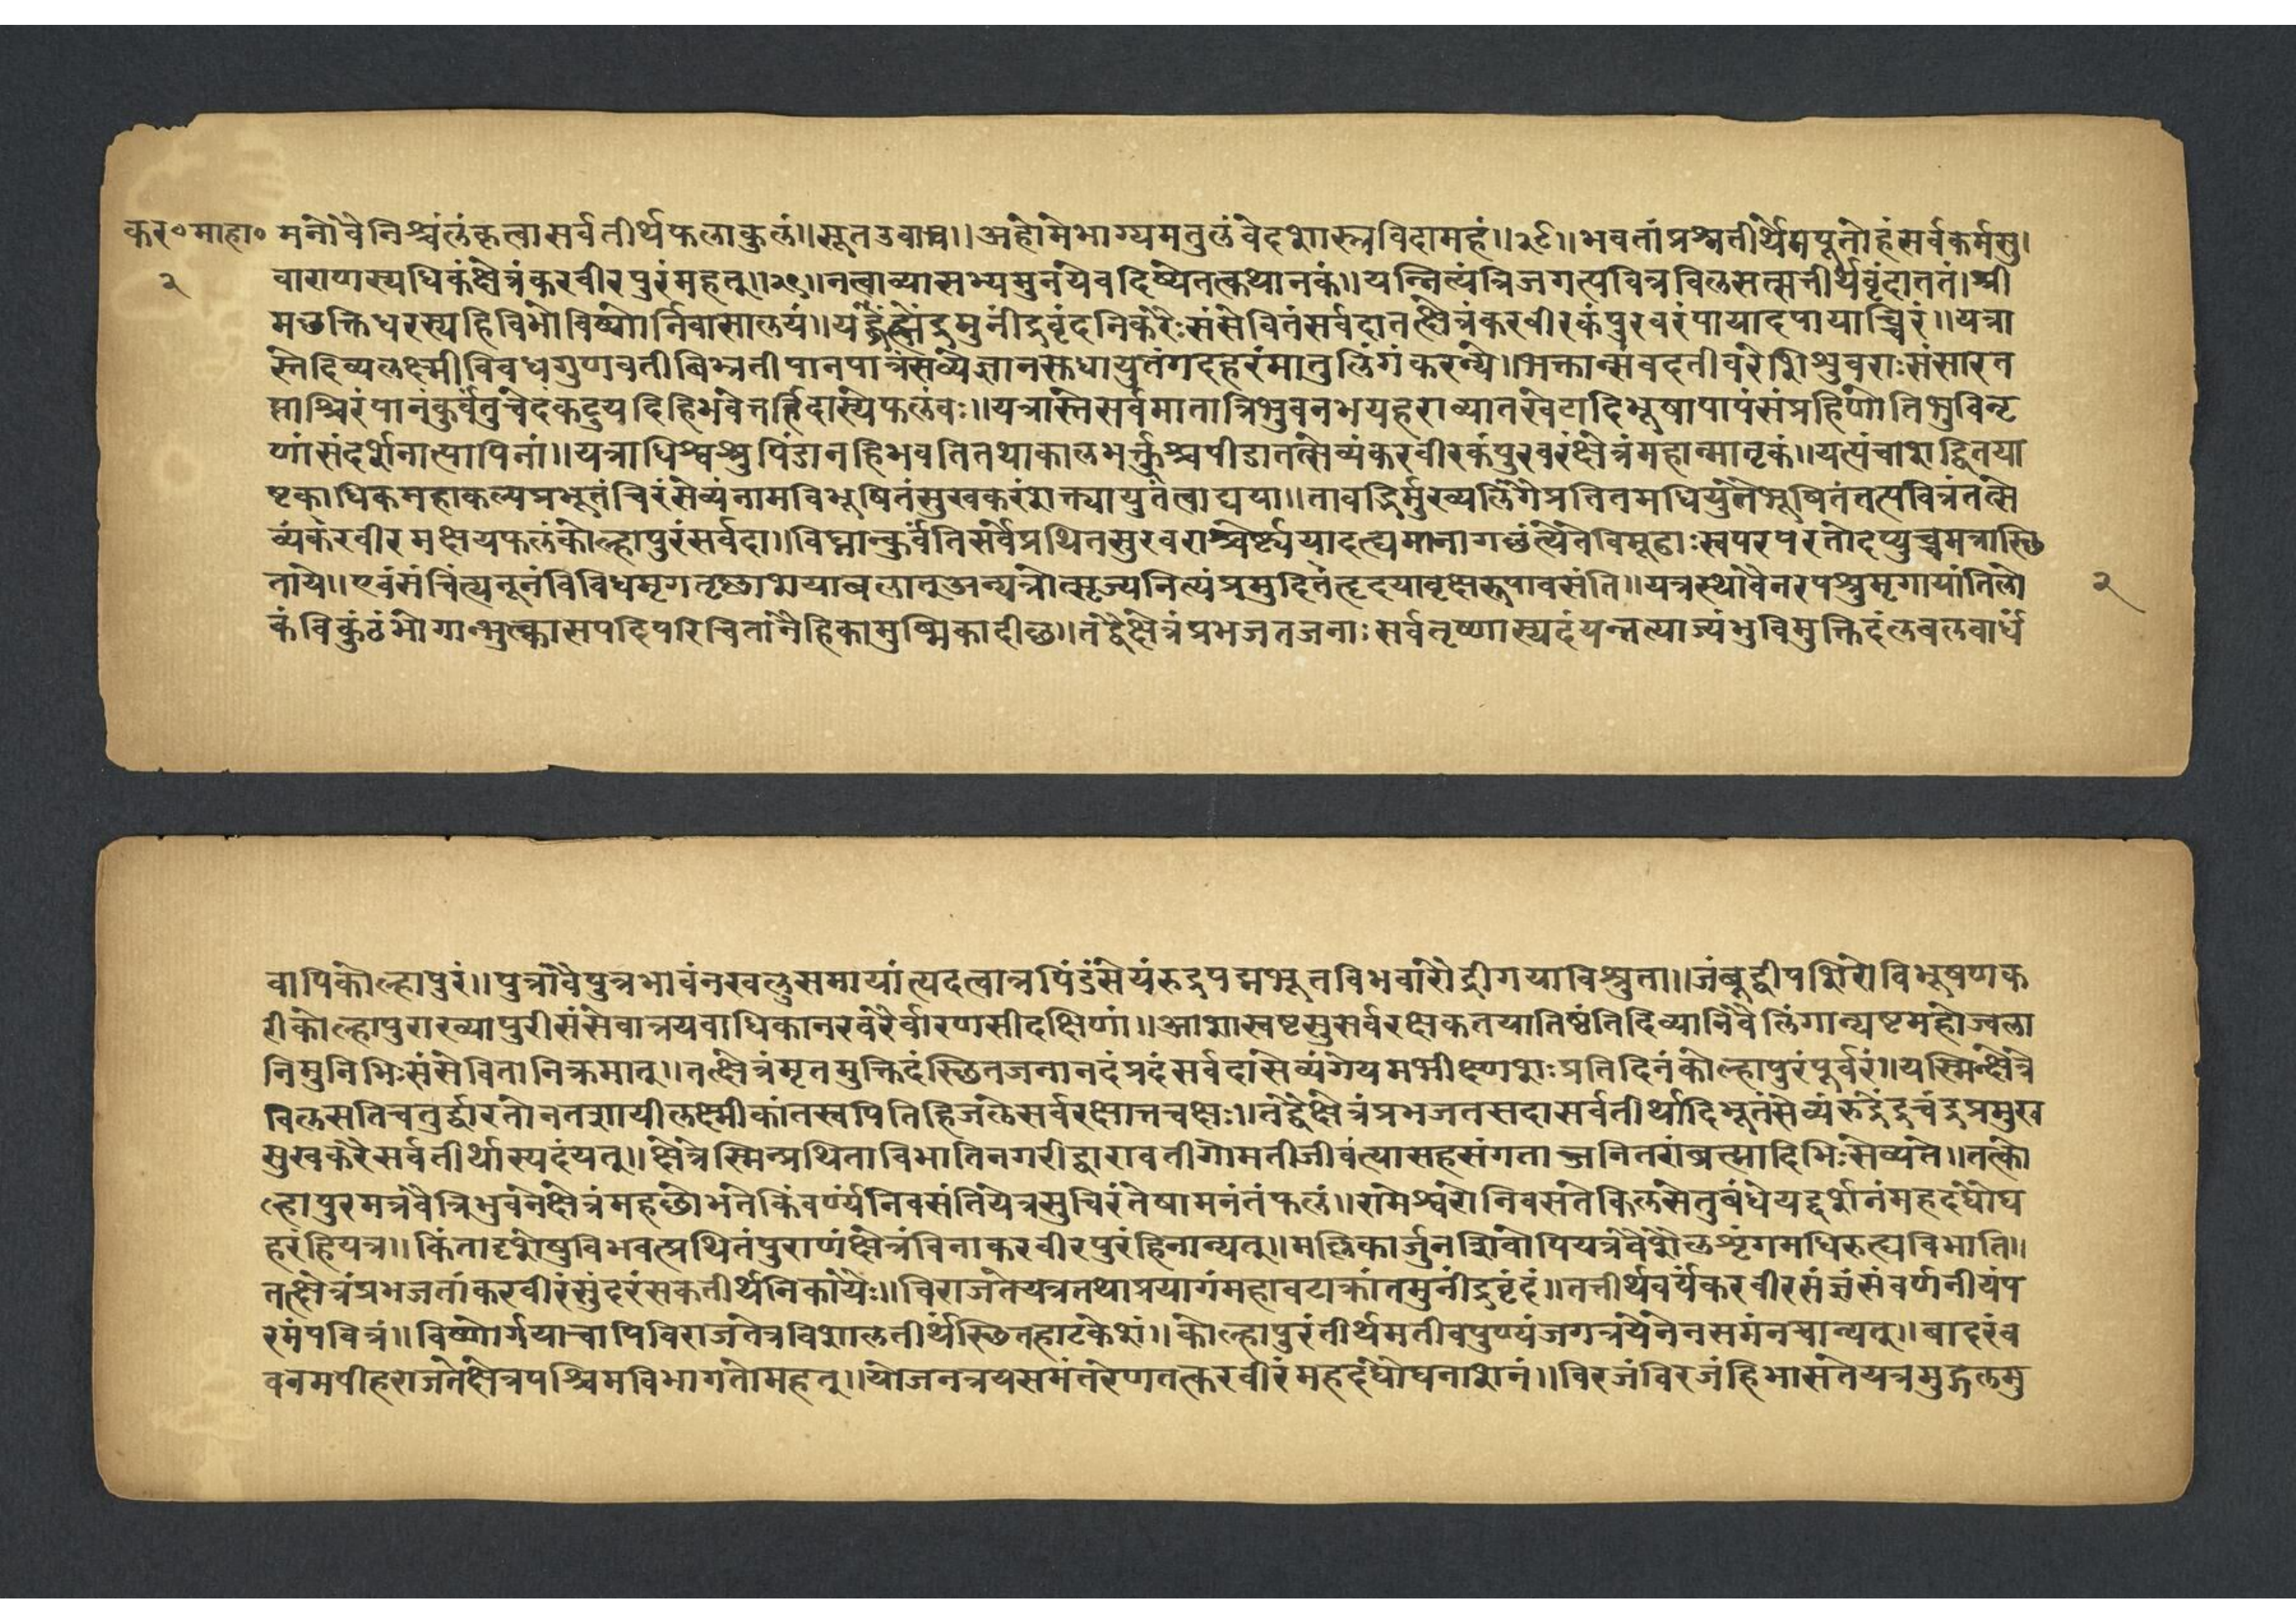 कर॰माहा॰ मनोवैनिश्चलंकृत्वासर्वतीर्थफलाकुलं॥सूतउवाच॥अहोमेभाग्यमतुलंवेदशास्त्रविदामहं॥२८॥भवतांप्रश्नतीर्थेमपूतोहंसर्वकर्मसु।
२ वाराणस्यधिकंक्षेत्रंकरवीरपुरंमहत्॥२९॥नत्वाव्यासभ्यमुनयेवदिष्येतत्कथानकं॥यन्नित्यंत्रिजगत्पवित्रविलसत्सत्तीर्थवृंदाततं।श्री
मछक्तिधरस्यहिविभोविष्णोर्निवासालयं॥ मुनींद्रवृंदनिकरैःसंसेवितंसर्वदातत्क्षेत्रंकरवीरकंपुरवरंपायादपायाच्चिरं॥यत्रा
स्तेदिव्यलक्ष्मीविवधगुणवतीबिभ्रतीपानपात्रंसव्येज्ञानस्तधायुतंगदहरंमातुलिंगंकरन्ये।भक्तान्संवदतीवरेशिशुवराःसंसारत
प्ताश्चिरंपानंकुर्वतुचेदंकटुयदिहिभवेत्तर्हिदास्येफलंवः॥यत्रास्तेसर्वमातात्रिभुवनभयहराव्यातखेटादिभूषापापंसंप्रहिणोतिभुविनृ
णांसंदर्शनात्पापिनां॥यत्राधिश्वश्रुपिंडानहिभवतितथाकालभर्त्तुश्चपीडातत्सेव्यंकरवीरकंपुरवरंक्षेत्रंमहान्मातृकं॥यत्पंचाशद्वितया
ष्टकाधिकमहाकल्पप्रभूतंचिरंसेव्यंनामविभूषितंसुखकरंशक्त्यायुतंत्वाद्यया॥तावद्भिर्मुख्यलिंगैप्रतितमधियुतैभूषितंतत्पवित्रंतत्से
व्यंकरवीरमक्षयफलंकोल्हापुरंसर्वदा॥विघ्नान्कुर्वंतिसर्वेप्रथितसुरवराश्चेर्ष्ययादह्यमानागछंत्येवेविमूढाःस्वपरपरतोदप्युच्चमत्रास्छि
ताये॥एवंसंचिंत्यनूनंविविधमृगतृष्णाभयाबलातुअन्यत्रोत्सृज्यनित्यंप्रमुदितहृदयावृक्षरूपावसंति॥यत्रस्थावैनरपश्रुमृगायांतिलो २
कंविकुंठंभोगान्भुत्क्वासपदिपरिचितानैहिकामुष्मिकादीछ॥तद्वैक्षेत्रंप्रभजतजनाःसर्वतृष्णास्पदंयन्नत्याज्यंभुविमुक्तिदंलवलवार्धं
वापिकोल्हापुरं॥पुत्रोवैपुत्रभावंनखलुसमायांत्यदत्वान्नपिंडंसेयंरुद्रपद्मभूतविभवारौद्रीगयाविश्रुता॥जंबुद्वीपशिरोविभूषणक
रीकोल्हापुराख्यापुरीसंसेवात्रयवाधिकानखरैर्वारणसीदक्षिणा॥आशास्वष्टसुसर्वरक्षकतयातिष्ठंतिदिव्यानिवैलिंगान्यष्टमहोज्वला
निमुनिभिःसंसेवितानिक्रमात्॥तत्क्षेत्रंमृतमुक्तिदंस्छितजनानदंप्रदंसर्वदासेव्यंगेयमभीक्ष्णशःप्रतिदिनंकोल्हापुरंपूर्वरं॥यस्मिन्क्षेत्रे
विलसतिचतुर्द्वारतोनतशायीलक्ष्मीकांतस्वपितिहिजलेसर्वरक्षात्तचक्षः॥तद्वैक्षेत्रंप्रभजतसदासर्वतीर्थादिभूतंसेव्यंरुद्रेंद्रचंद्रप्रमुख
सुखकरैसर्वतीर्थास्पदंयत्॥क्षेत्रेस्मिन्प्रथिताविभातिनगरीद्वारावतीगोमतीजीवंत्यासहसंगताऽनितरांब्रत्मादिभिःसेव्यते॥तत्को
ल्हापुरमत्रवैत्रिभुवनेक्षेत्रंमहछोभतेकिंवर्ण्यंनिवसंतियेत्रसुचिरंतेषामनंतंफलं॥रामेश्वरोनिवसतेकिलसेतुबंधेयद्दर्शनंमहदघौघ
हरंहियत्र॥किंतादृशेषुविभवत्प्रथितंपुराणंक्षेत्रंविनाकरवीरपुरंहिनान्यत्॥मल्लिकार्जुनशिवोपियत्रवैशैलशृंगमधिरुत्यविभाति॥
तत्क्षेत्रंप्रभजतांकरवीरंसुंदरंसकतीर्थनिकायैः॥विराजतेयत्रतथाप्रयागंमहावटाक्रांतमुनींद्रवृंदं॥तत्तीर्थवर्यंकरवीरसंज्ञंसंवर्णनीयंप
रमंपवित्रं॥विष्णोर्गयाचापिविराजतेत्रविशालतीर्थंस्छितहाटकेशं॥कोल्हापुरंतीर्थमतीवपुण्यंजगत्त्रयेनेनसमंनचान्यत्॥बादरंव
वनमपीहराजतेक्षेत्रपश्चिमविभागतोमहत्॥योजनत्रयसमंतरेणतत्करवीरंमहदंघोघनाशनं॥विरजंविरजंहिभासतेयत्रमुद्गलमु